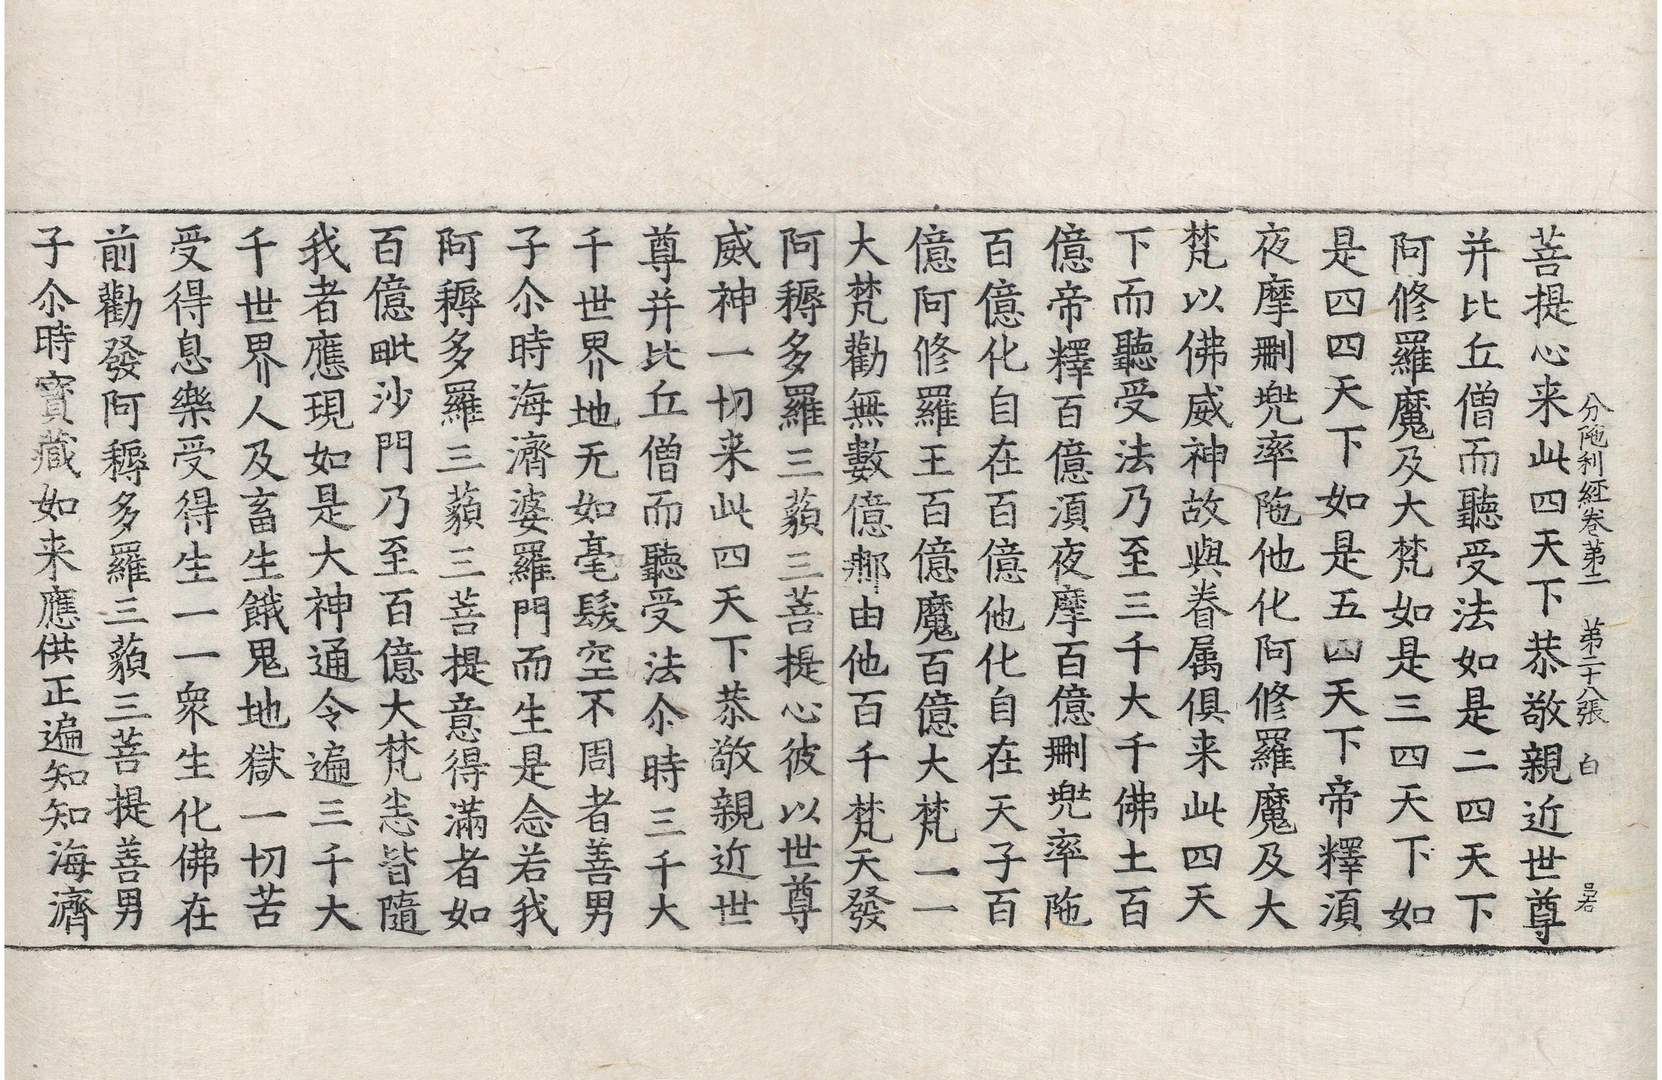 分陁利経卷第二 第二十八張 白 呂若
菩提心来此四天下恭敬親近世尊
并比丘僧而聽受法如是二四天下
阿修羅魔及大梵如是三四天下如
是四四天下如是五四天下帝釋湏
夜摩刪兠率陁他化阿修羅魔及大
梵以佛威神故與眷属俱来此四天
下而聽受法乃至三千大千佛土百
億帝釋百億湏夜摩百億刪兠率陁
百億化自在百億他化自在天子百
億阿修羅王百億魔百億大梵一一
大梵勸無數億𨚗由他百千梵天發
阿耨多羅三藐三菩提心彼以世尊
威神一切来此四天下恭敬親近世
尊并比丘僧而聽受法尒時三千大
千世界地无如毫髮空不周者善男
子尒時海濟婆羅門而生是念若我
阿耨多羅三藐三菩提意得滿者如
百億毗沙門乃至百億大梵悉皆隨
我者應現如是大神通令遍三千大
千世界人及畜生餓鬼地獄一切苦
受得息樂受得生一一衆生化佛在
前勸發阿耨多羅三藐三菩提善男
子尒時寳藏如来應供正遍知知海濟